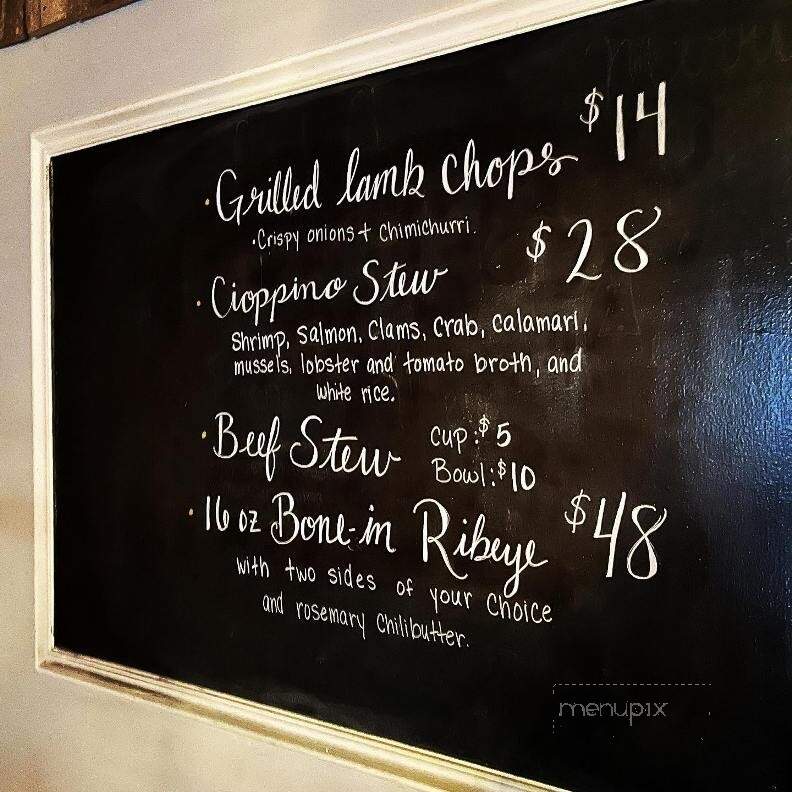 · Grilled lamb chops $14
· Crispy onions + chimichurri.
· Cioppino Stew $28
Shrimp, Salmon, Clams, Crab, calamari,
mussels, lobster and tomato broth, and
white rice.
· Beef Stew cup: $5
Bowl: $10
· 16 oz Bone-in Ribeye $48
with two sides of your choice
and rosemary chilibutter.
menupix